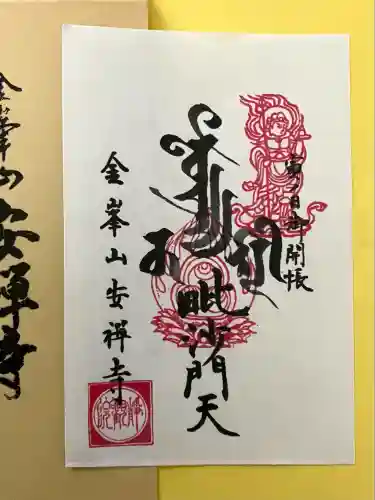 寅ノ日御開帳
毘沙門天
金峯山安禅寺
金峯山安禅寺